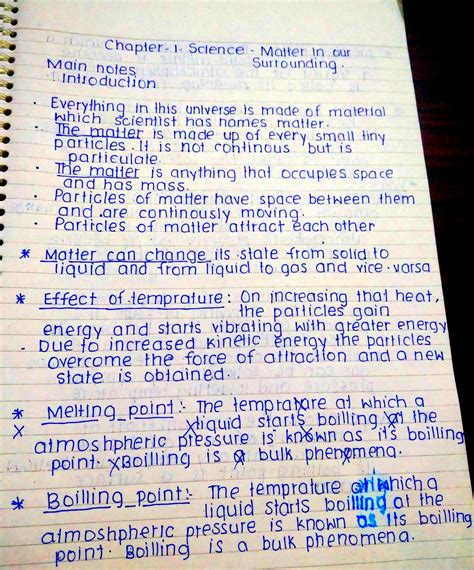 Chapter-1- Science - Matter in our
Surrounding.
Main notes
Introduction
• Everything in this universe is made of material
which scientist has names matter.
• The matter is made up of every small tiny
particles. It is not continous but is
particulate.
• The matter is anything that occupies space
and has mass.
• Particles of matter have space between them
and are continously moving.
• Particles of matter attract each other
* Matter can change its state from solid to
liquid and from liquid to gas and vice-varsa
* Effect of temprature: On increasing that heat,
the particles gain
energy and starts vibrating with greater energy
• Due to increased kinetic energy the particles
overcome the force of attraction and a new
state is obtained.
* Melting point:- The temprature at which a
X liquid starts boilling at the
atmoshpheric pressure is known as its boilling
point. Boilling is a bulk phenomena.
* Boilling point:- The temprature at which a
liquid starts boilling at the
atmoshpheric pressure is known as its boilling
point. Boilling is a bulk phenomena.